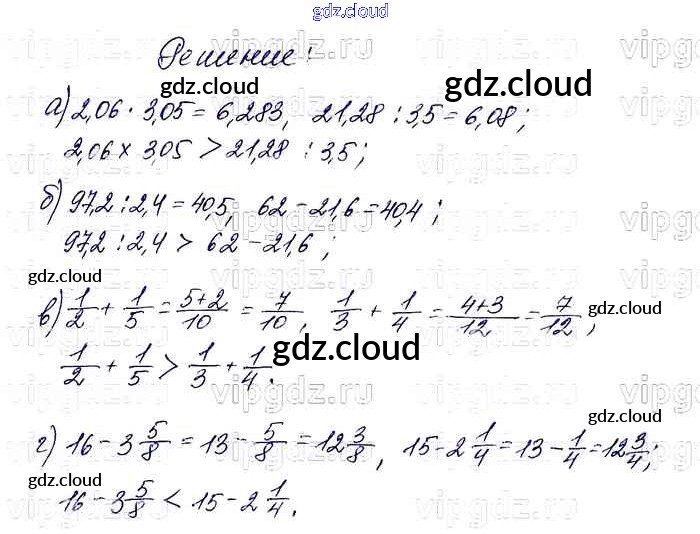 gdz.cloud
Решение:
а) 2,06 · 3,05 = 6,283, 21,28 : 3,5 = 6,08;
2,06 × 3,05 > 21,28 : 3,5;
б) 97,2 : 2,4 = 40,5, 62 − 21,6 = 40,4;
97,2 : 2,4 > 62 − 21,6;
в) 1/2 + 1/5 = 5+2/10 = 7/10, 1/3 + 1/4 = 4+3/12 = 7/12,
1/2 + 1/5 > 1/3 + 1/4.
г) 16 − 3 5/8 = 13 − 5/8 = 12 3/8, 15 − 2 1/4 = 13 − 1/4 = 12 3/4;
16 − 3 5/8 < 15 − 2 1/4.
gdz.cloud
gdz.cloud
gdz.cloud
gdz.cloud
gdz.cloud
gdz.cloud
gdz.cloud